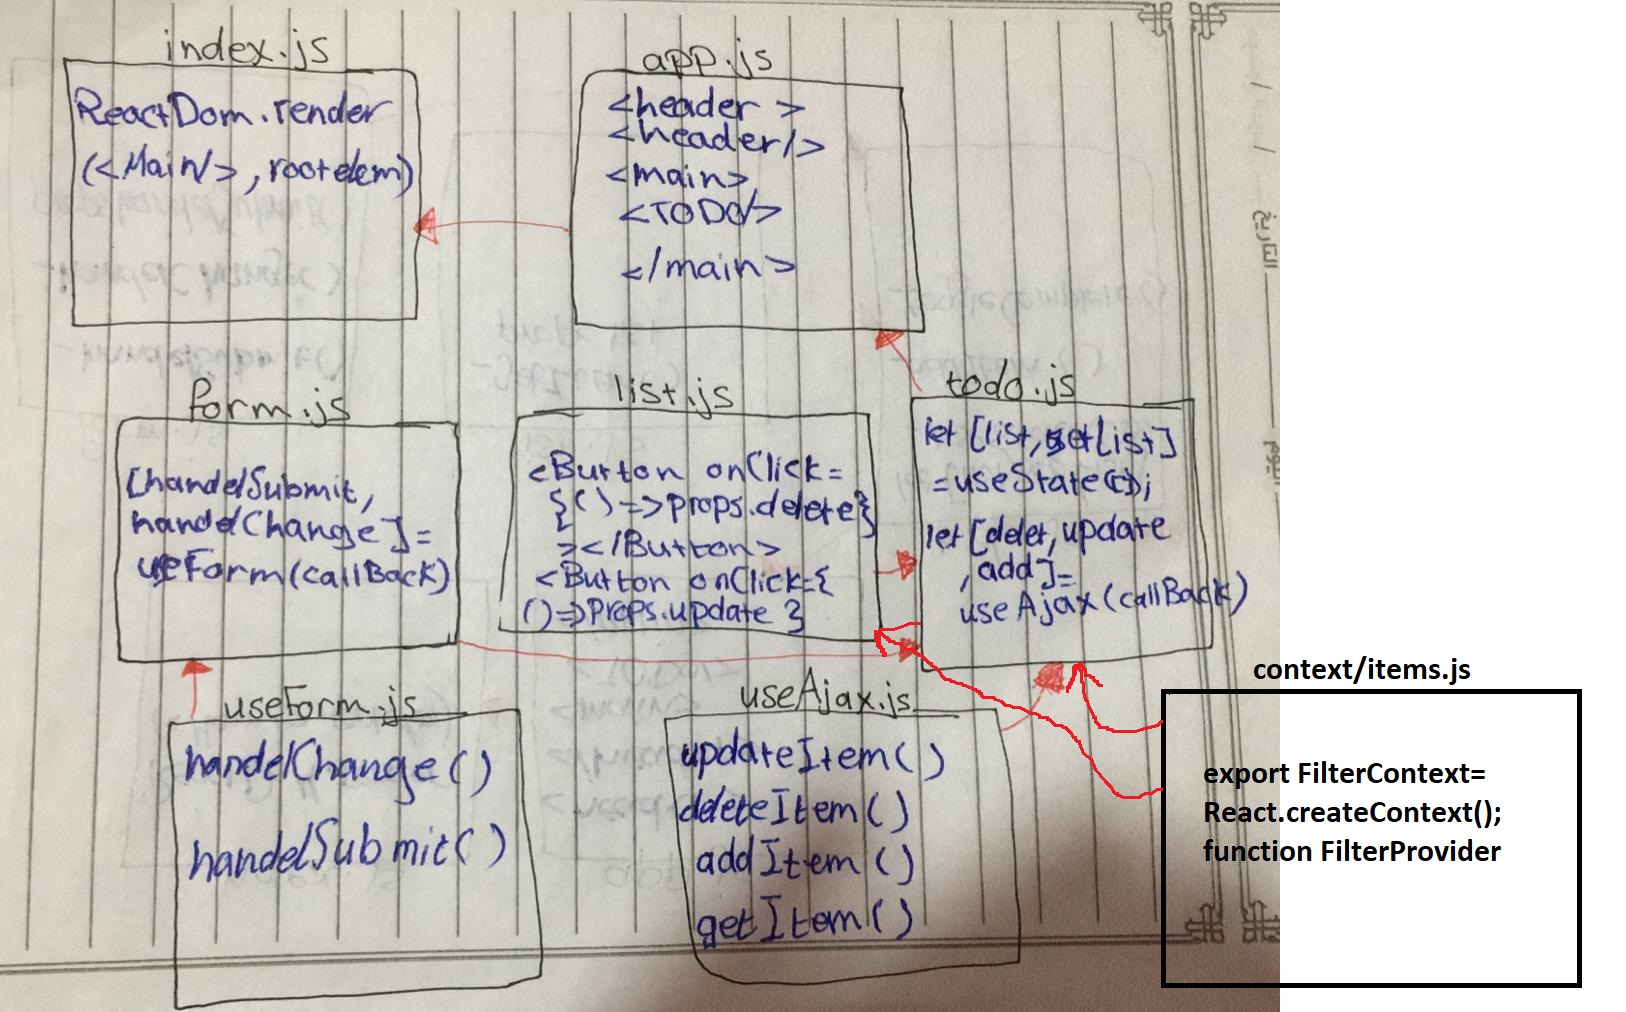 index.js
ReactDom.render
(<Main/>, rootelem)
app.js
<header >
<header/>
<main>
<TODO/>
</main>
form.js
[handelSubmit,
handelChange]=
useForm(callBack)
list.js
<Button onClick=
{()=>props.delete}
></Button>
<Button onClick={
()=>props.update }
todo.js
let [list, setList]
=useState();
let [delet, update
, add]=
useAjax(callBack)
useForm.js
handelChange()
handelSubmit()
useAjax.js
updateItem()
deleteItem()
addItem()
getItem()
context/items.js
export FilterContext=
React.createContext();
function FilterProvider
التاريخ
اليوم